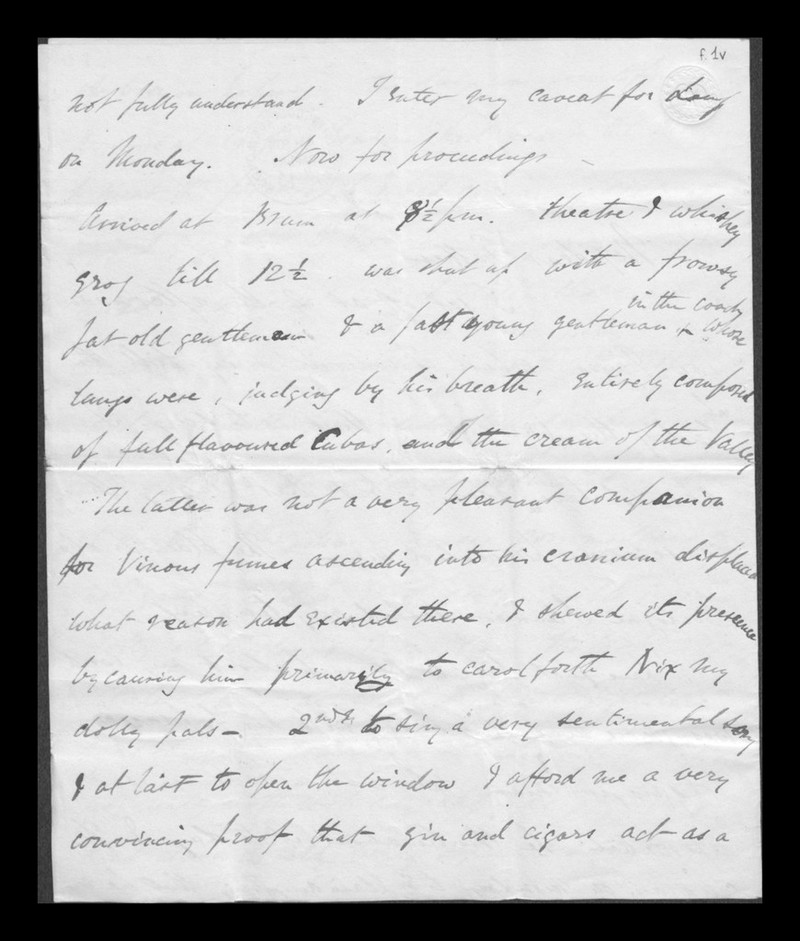 f.1v
not fully understand. I enter my caveat for
on Monday. Now for proceedings –
Arrived at Brum at 8½ p.m. Theatre & whiskey
grog till 12½. was shut up with a frowsy
in the coach
fat old gentleman & a fast young gentleman, whose
lungs were, judging by his breath, entirely composed
of full flavoured Cubas, and the cream of the Valley
The latter was not a very pleasant companion
for Vinous fumes ascending into his cranium displaced
what reason had existed there, & shewed its presence
by causing him primarily to carol forth Nix my
dolly pals – 2ndly to sing a very sentimental song
& at last to open the window & afford me a very
convincing proof that gin and cigars act as a